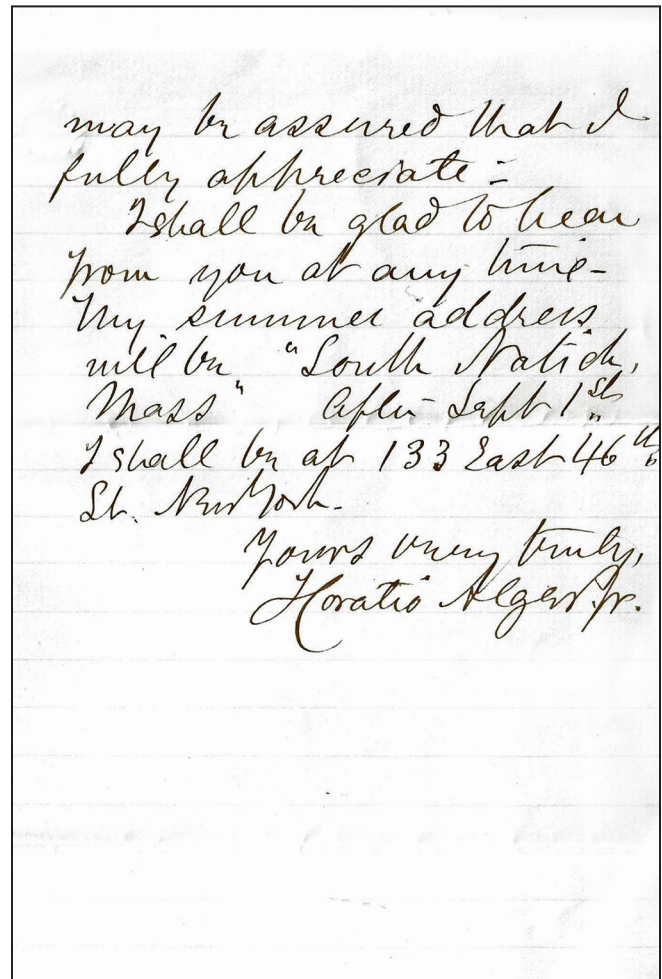 may be assured that I
fully appreciate -
I shall be glad to hear
from you at any time -
My summer address
will be "South Natick,
Mass" After Sept 1st
I shall be at 133 East 46th
St. New York -
Yours very truly,
Horatio Alger Jr.